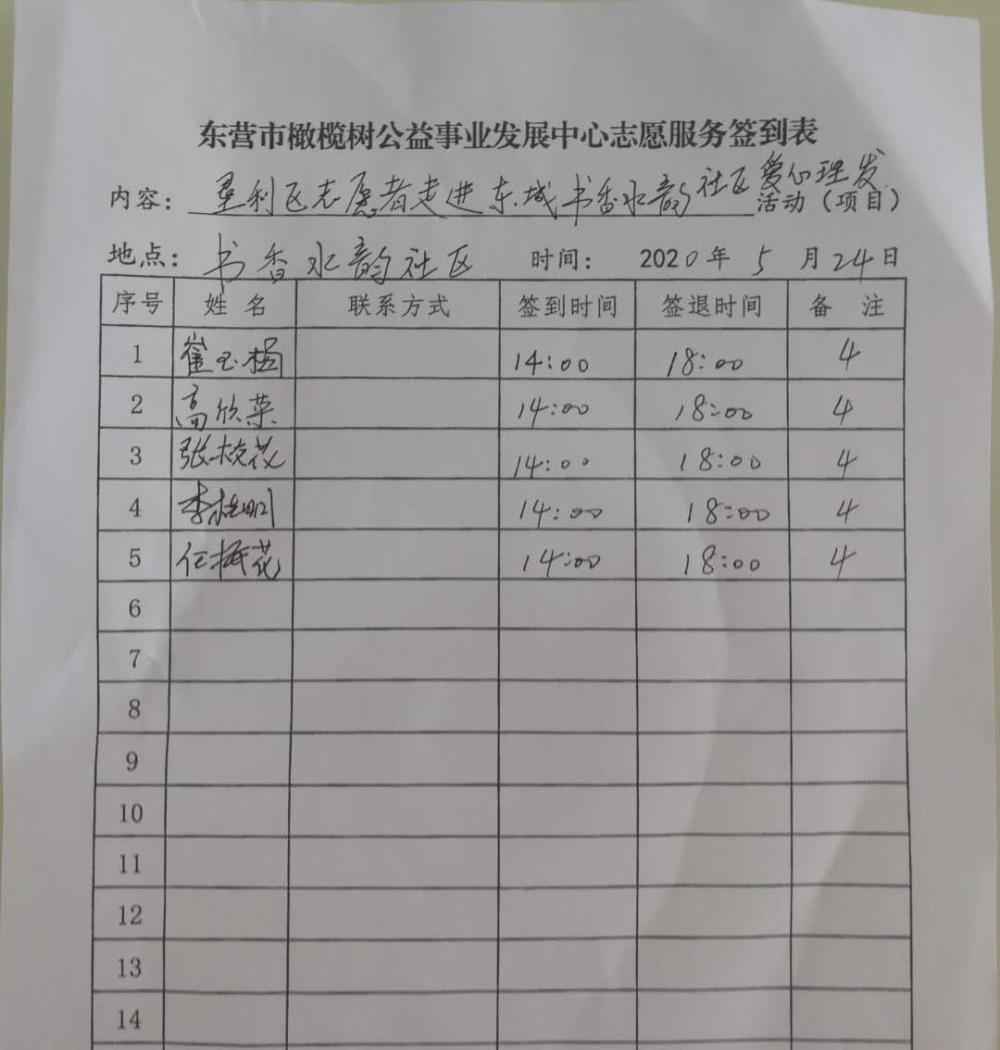 东营市橄榄树公益事业发展中心志愿服务签到表
内容：垦利区志愿者走进东城书香水韵社区爱心理发活动（项目）
地点：书香水韵社区 时间：2020年5月24日
序号 姓名 联系方式 签到时间 签退时间 备注
1 崔玉梅 14:00 18:00 4
2 高欣荣 14:00 18:00 4
3 张枝花 14:00 18:00 4
4 14:00 18:00 4
5 任振花 14:00 18:00 4
6
7
8
9
10
11
12
13
14